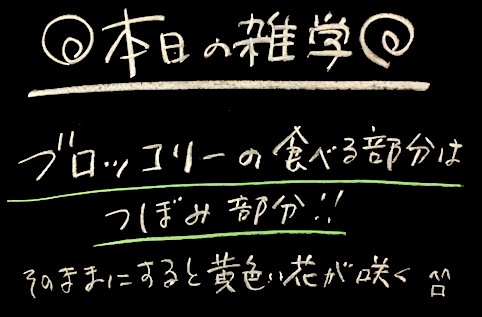 本日の雑学
ブロッコリーの食べる部分は
つぼみ部分!!
そのままにすると黄色い花が咲く